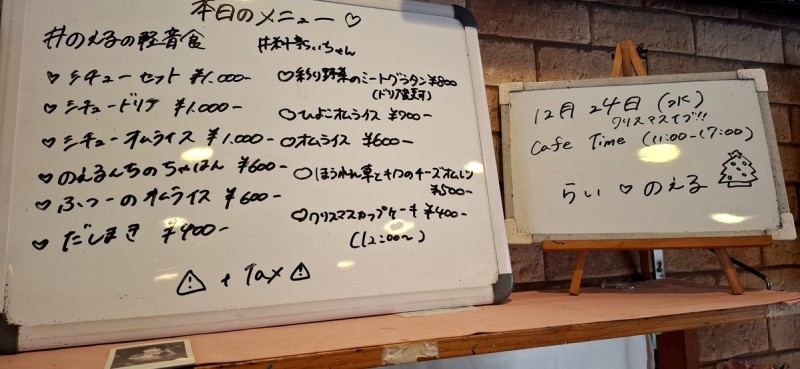 本日のメニュー♡
#のえるの軽音食
♡シチューセット ¥1.000-
♡シチュードリア ¥1.000-
♡シチューオムライス ¥1.000-
♡のえるんちのちゃはん ¥600-
♡ふつーのオムライス ¥600-
♡だしまき ¥400-
#料らいちゃん
○彩り野菜のミートグラタン¥800
○ひよこオムライス ¥700-
○オムライス ¥600-
○ほうれん草とキノコのチーズオムレツ
¥500-
○クリスマスカップケーキ ¥400-
(12:00〜)
⚠ + Tax ⚠
12月 24日 (水)
クリスマスイブ!!
Cafe Time (11:00-17:00)
らい ♡ のえる